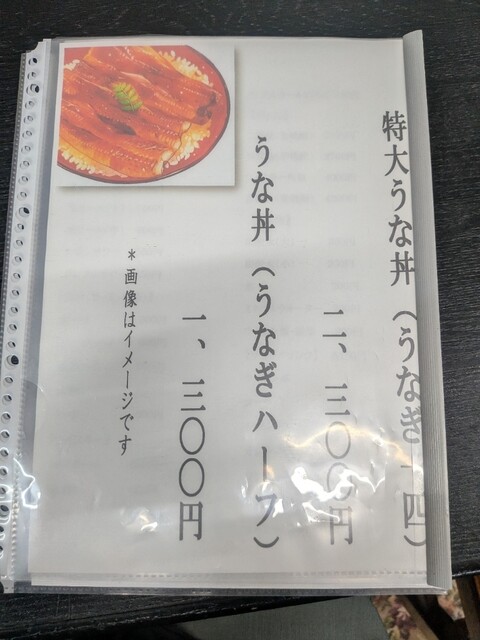 特大うな丼（うなぎ一匹）
二、三〇〇円
うな丼（うなぎハーフ）
一、三〇〇円
＊画像はイメージです